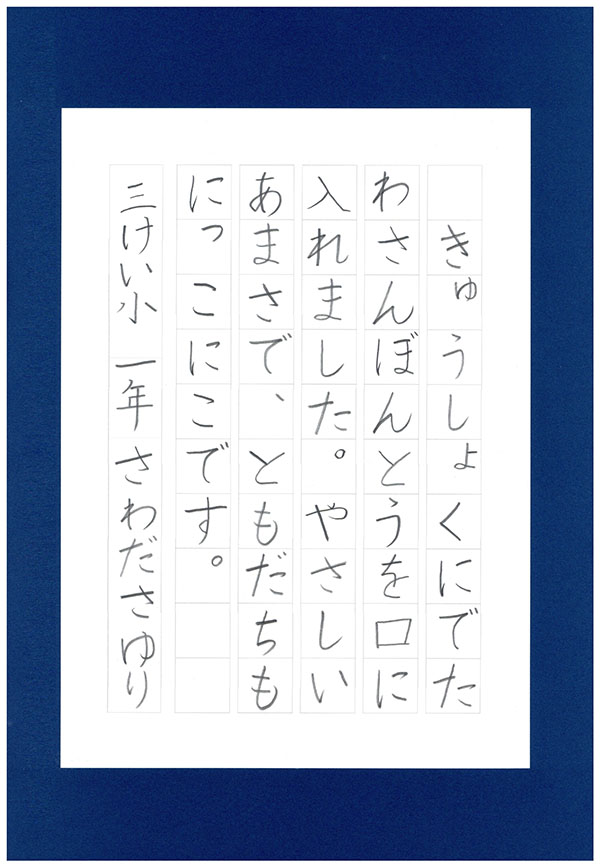 きゅうしょくにでた
わさんぼんとうを口に
入れました。やさしい
あまさで、ともだちも
にっこにこです。
三けい小 一年 さわださゆり